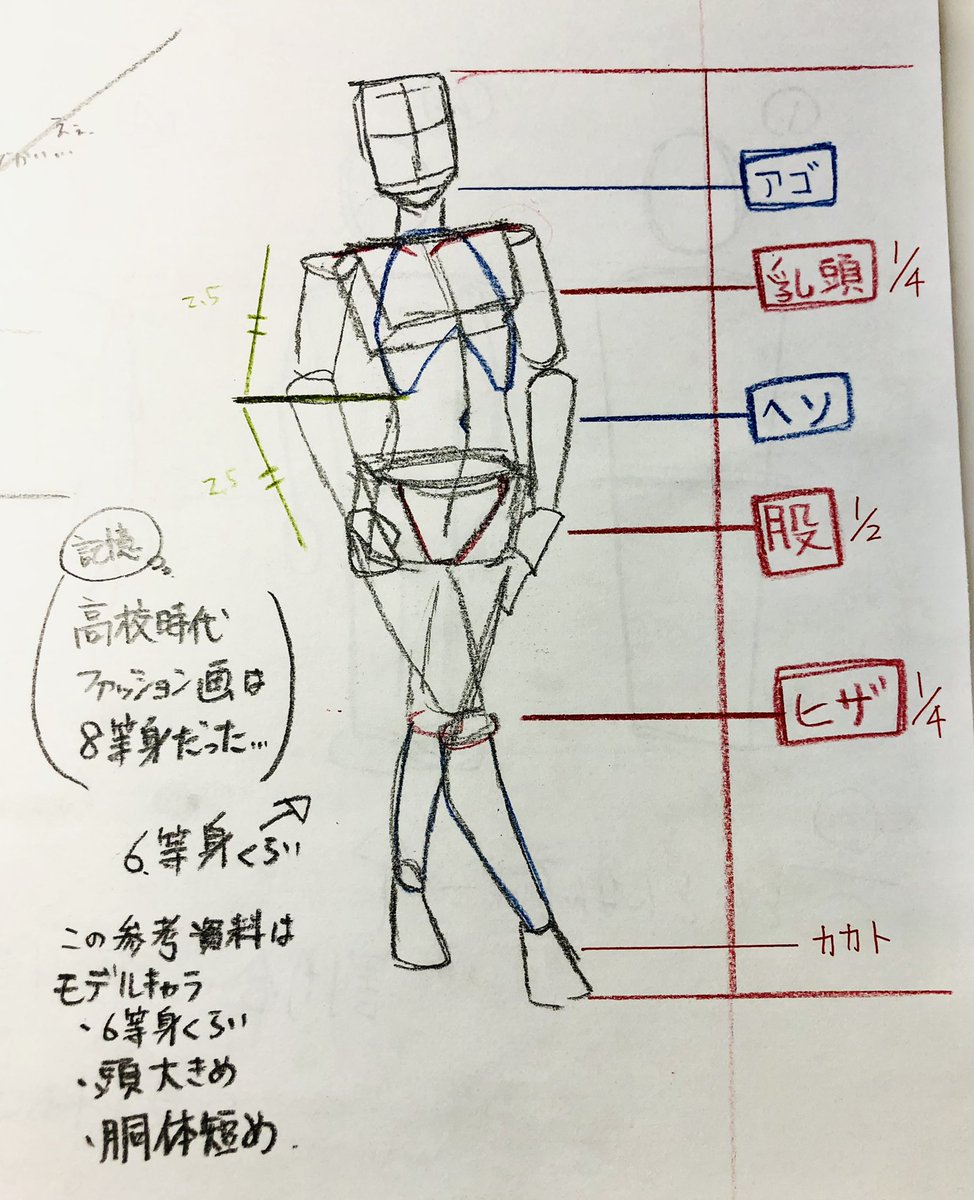 アゴ
乳頭 1/4
ヘソ
股 1/2
ヒザ 1/4
カカト
2.5
2.5
記憶
高校時代
ファッション画は
8等身だった…
6等身くらい
この参考資料は
モデルキャラ
・6等身くらい
・頭大きめ
・胴体短め